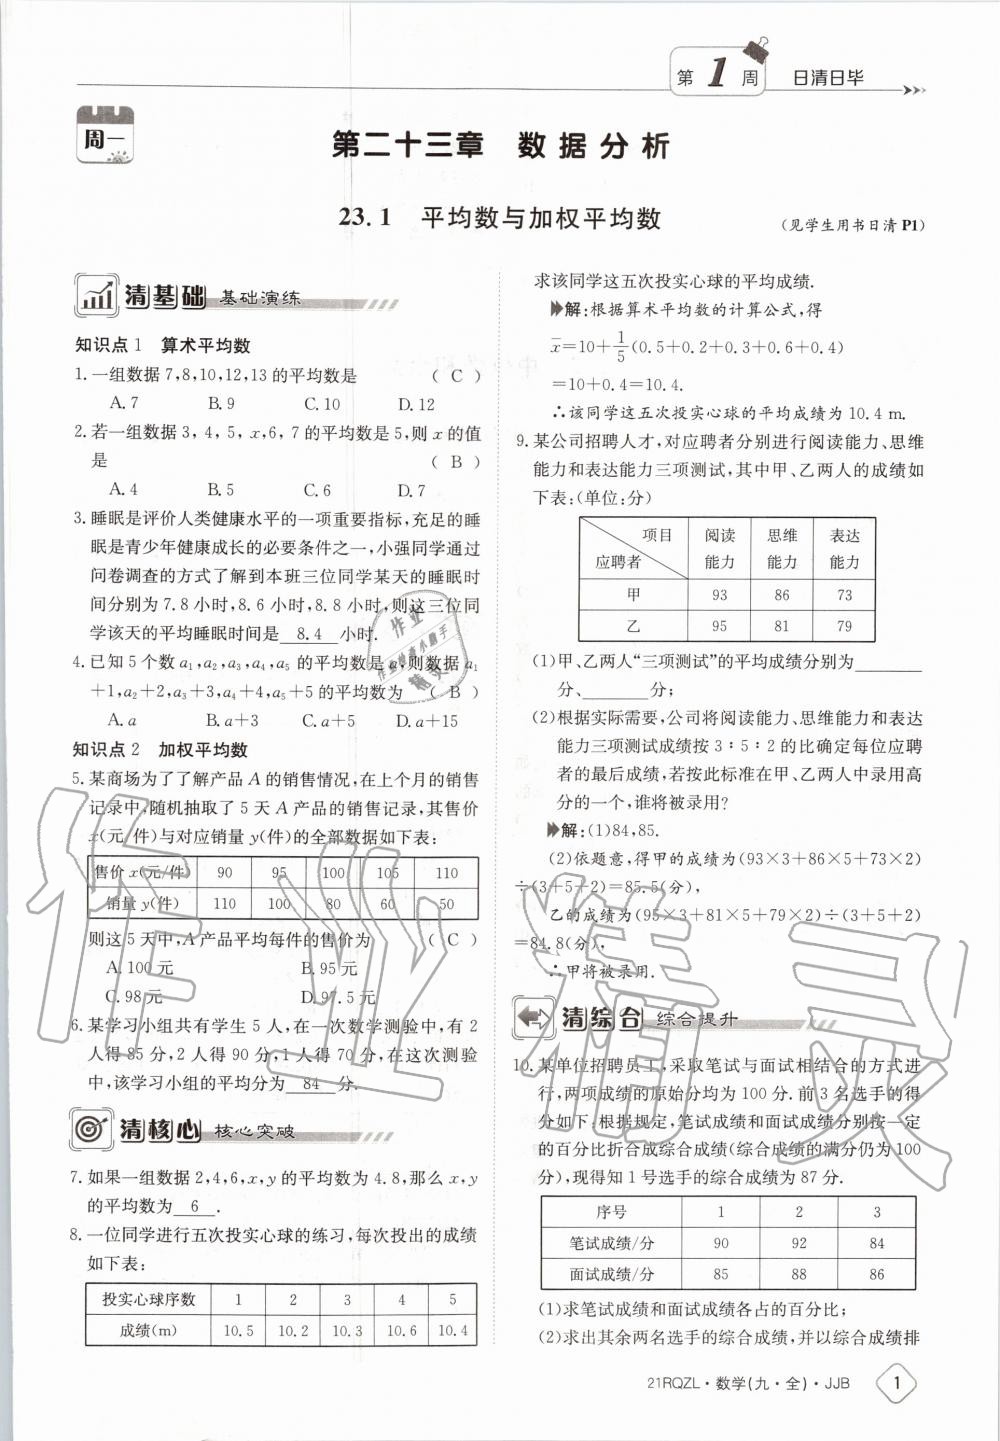 第1周 日清日毕
周一
第二十三章 数据分析
23.1 平均数与加权平均数
(见学生用书日清P1)
清基础 基础演练
知识点1 算术平均数
1.一组数据7,8,10,12,13的平均数是 ( C )
A.7 B.9 C.10 D.12
2.若一组数据3,4,5,x,6,7的平均数是5,则x的值
是 ( B )
A.4 B.5 C.6 D.7
3.睡眠是评价人类健康水平的一项重要指标,充足的睡
眠是青少年健康成长的必要条件之一,小强同学通过
问卷调查的方式了解到本班三位同学某天的睡眠时
间分别为7.8小时,8.6小时,8.8小时,则这三位同
学该天的平均睡眠时间是 8.4 小时.
4.已知5个数a₁,a₂,a₃,a₄,a₅的平均数是a,则数据a₁
+1,a₂+2,a₃+3,a₄+4,a₅+5的平均数为 ( B )
A.a B.a+3 C.a+5 D.a+15
知识点2 加权平均数
5.某商场为了了解产品A的销售情况,在上个月的销售
记录中,随机抽取了5天A产品的销售记录,其售价
x(元/件)与对应销量y(件)的全部数据如下表:
售价x(元/件 90 95 100 105 110
销量y(件) 110 100 80 60 50
则这5天中,A产品平均每件的售价为 ( C )
A.100元 B.95元
C.98元 D.97.5元
6.某学习小组共有学生5人,在一次数学测验中,有2
人得85分,2人得90分,1人得70分,在这次测验
中,该学习小组的平均分为 84 分.
清核心 核心突破
7.如果一组数据2,4,6,x,y的平均数为4.8,那么x,y
的平均数为 6 .
8.一位同学进行五次投实心球的练习,每次投出的成绩
如下表:
投实心球序数 1 2 3 4 5
成绩(m) 10.5 10.2 10.3 10.6 10.4
求该同学这五次投实心球的平均成绩.
解:根据算术平均数的计算公式,得
x̄=10+1/5(0.5+0.2+0.3+0.6+0.4)
=10+0.4=10.4.
∴该同学这五次投实心球的平均成绩为10.4 m.
9.某公司招聘人才,对应聘者分别进行阅读能力、思维
能力和表达能力三项测试,其中甲、乙两人的成绩如
下表:(单位:分)
项目 阅读 思维 表达
应聘者 能力 能力 能力
甲 93 86 73
乙 95 81 79
(1)甲、乙两人“三项测试”的平均成绩分别为______
分、______分;
(2)根据实际需要,公司将阅读能力、思维能力和表达
能力三项测试成绩按3∶5∶2的比确定每位应聘
者的最后成绩,若按此标准在甲、乙两人中录用高
分的一个,谁将被录用?
解:(1)84,85.
(2)依题意,得甲的成绩为(93×3+86×5+73×2)
÷(3+5+2)=85.5(分),
乙的成绩为(95×3+81×5+79×2)÷(3+5+2)
=84.8(分),
∴甲将被录用.
清综合 综合提升
10.某单位招聘员工,采取笔试与面试相结合的方式进
行,两项成绩的原始分均为100分.前3名选手的得
分如下.根据规定,笔试成绩和面试成绩分别按一定
的百分比折合成综合成绩(综合成绩的满分仍为100
分),现得知1号选手的综合成绩为87分.
序号 1 2 3
笔试成绩/分 90 92 84
面试成绩/分 85 88 86
(1)求笔试成绩和面试成绩各占的百分比;
(2)求出其余两名选手的综合成绩,并以综合成绩排
21RQZL·数学(九·全)·JJB 1
作业精灵